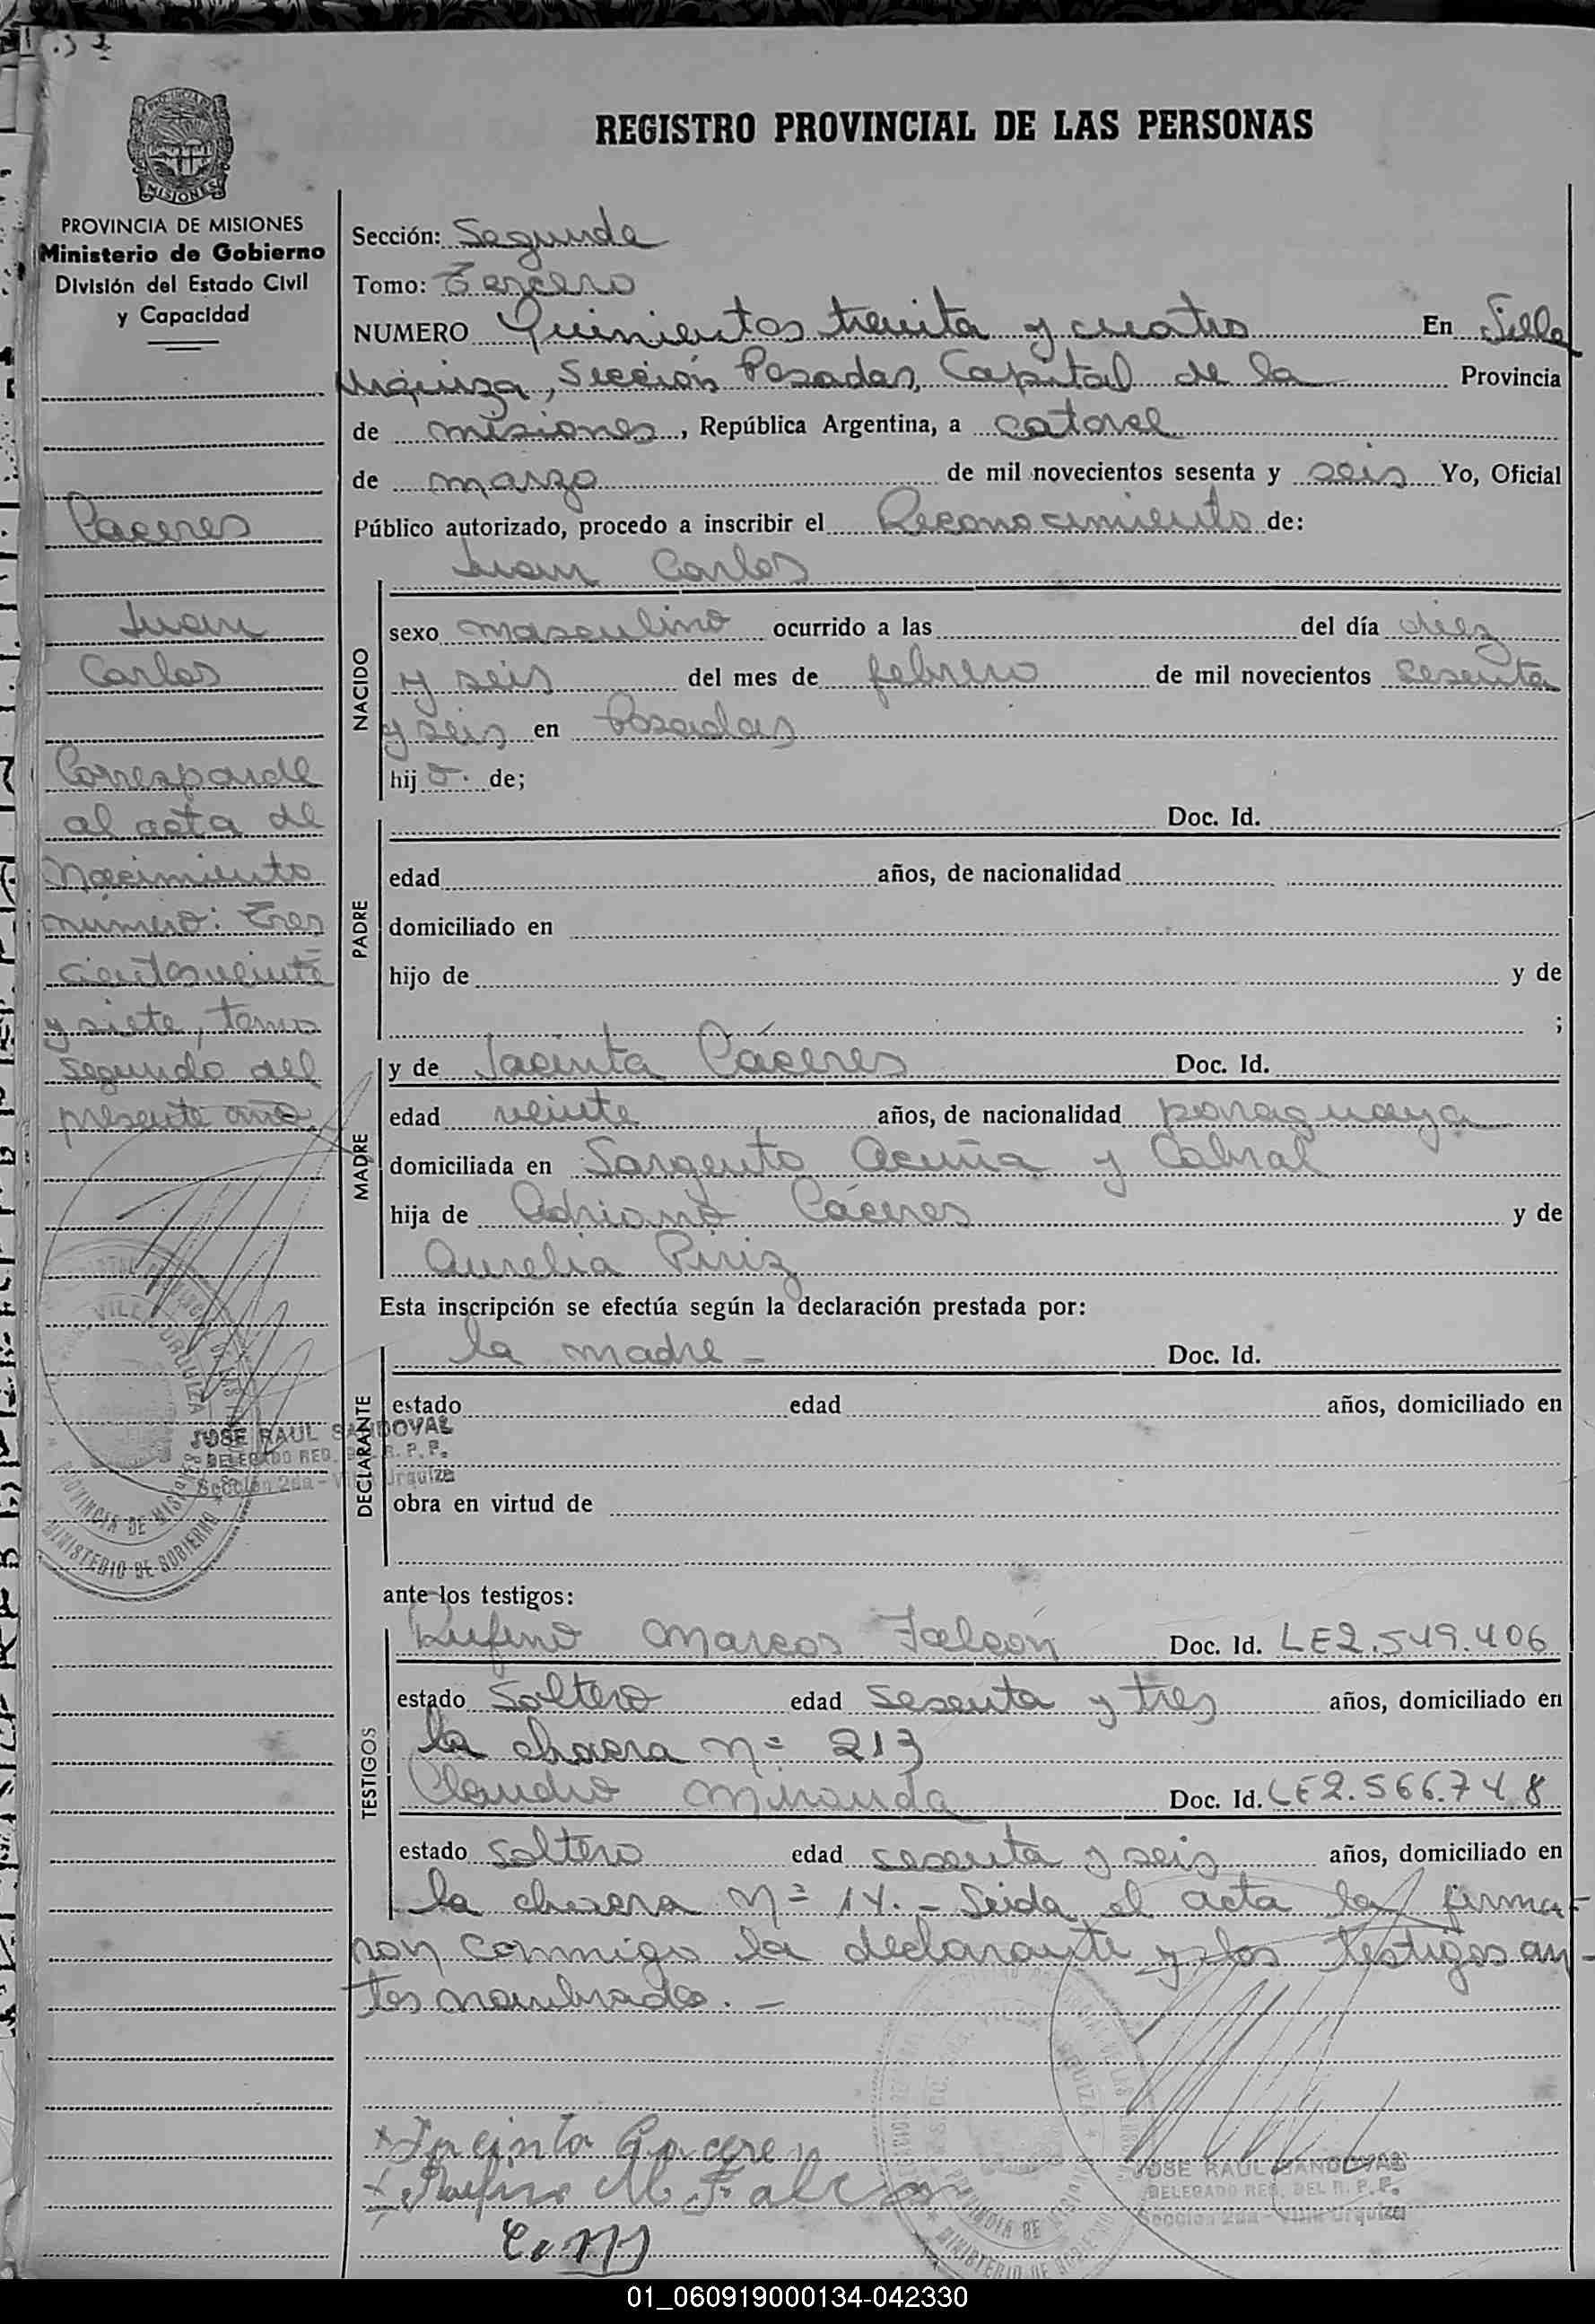 REGISTRO PROVINCIAL DE LAS PERSONAS
MISIONES
PROVINCIA DE MISIONES
Ministerio de Gobierno
División del Estado Civil
y Capacidad
Caceres
Juan
Carlos
Corresponde
al acta de
Nacimiento
número: Tres
cientos veinte
y siete, tomo
segundo del
presente año.
JOSE RAUL SANDOVAL
DELEGADO REG. DEL R. P. P.
Sección 2da - Villa Urquiza
PROVINCIA DE MISIONES
MINISTERIO DE GOBIERNO
Sección: Segunda
Tomo: Tercero
NUMERO Quinientos treinta y cuatro En Villa
Urquiza, Sección Posadas, Capital de la Provincia
de misiones, República Argentina, a catorce
de marzo de mil novecientos sesenta y seis Yo, Oficial
Público autorizado, procedo a inscribir el Reconocimiento de:
Juan Carlos
NACIDO
sexo masculino ocurrido a las del día diez
y seis del mes de febrero de mil novecientos sesenta
y seis en Posadas
hij o. de;
PADRE
Doc. Id.
edad años, de nacionalidad
domiciliado en
hijo de y de
;
MADRE
y de Jacinta Cáceres Doc. Id.
edad veinte años, de nacionalidad paraguaya
domiciliada en Sargento Acuña y Cabral
hija de Adriano Cáceres y de
Aurelia Piriz
Esta inscripción se efectúa según la declaración prestada por:
DECLARANTE
la madre - Doc. Id.
estado edad años, domiciliado en
obra en virtud de
ante los testigos:
TESTIGOS
Rufino Marcos Falcón Doc. Id. LE2.549.406
estado Soltero edad sesenta y tres años, domiciliado en
la chacra nº 213
Claudio Miranda Doc. Id. LE2.566.748
estado soltero edad sesenta y seis años, domiciliado en
la chacra nº 14. - Leida el acta la firma-
ron conmigo la declarante y los testigos an-
tes nombrados. -
x Jacinta Caceres
x Rufino M. Falcon
C. M
JOSE RAUL SANDOVAL
DELEGADO REG. DEL R. P. P.
Sección 2da - Villa Urquiza
01_060919000134-042330